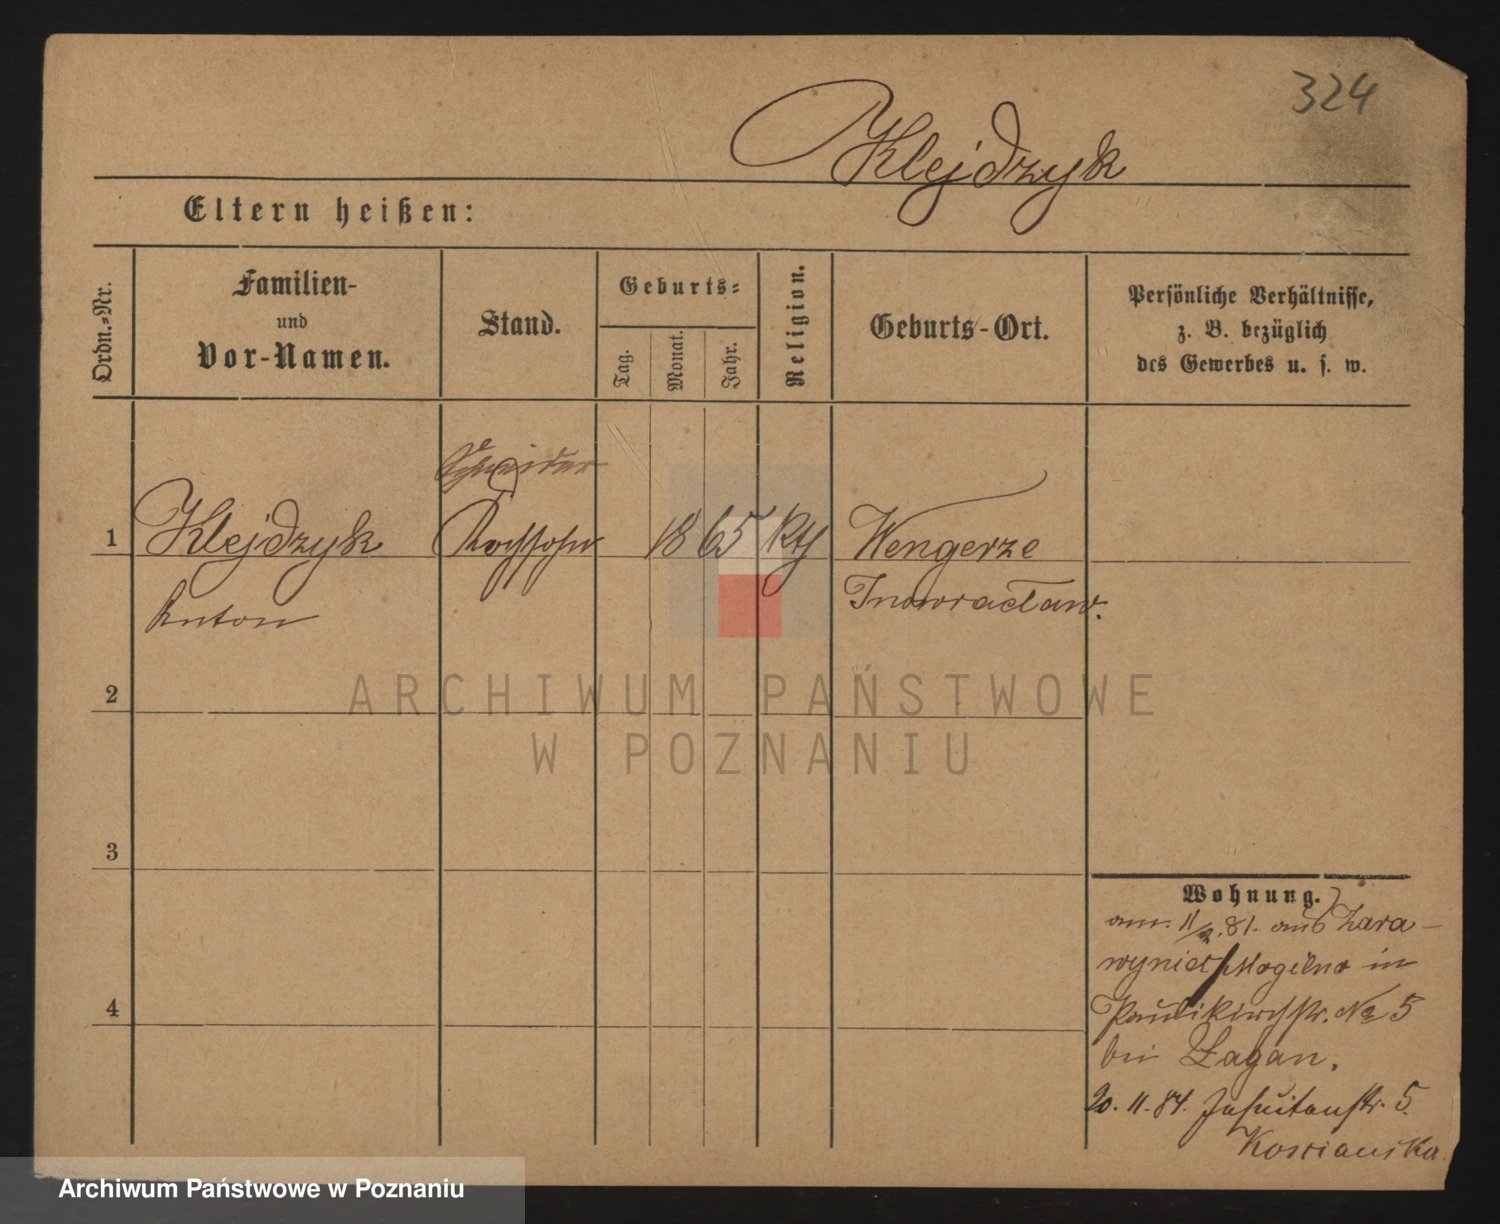 324
Klejdzyk
Eltern heißen:
Ordn.-Nr.
Familien-
und
Vor-Namen.
Stand.
Geburts-
Tag.
Monat.
Jahr.
Religion.
Geburts-Ort.
Persönliche Verhältnisse,
z. B. bezüglich
des Gewerbes u. s. w.
Schneider
1 Klejdzyk 1865 kth Wengerze
Anton Inowracław.
2
ARCHIWUM PAŃSTWOWE
W POZNANIU
3
Wohnung.
am 11/2.81. aus
Mogilno in
Paulikirchstr. No 5
bei Łagan.
20.11.84. Jesuitenstr. 5.
Koscianska
4
Archiwum Państwowe w Poznaniu